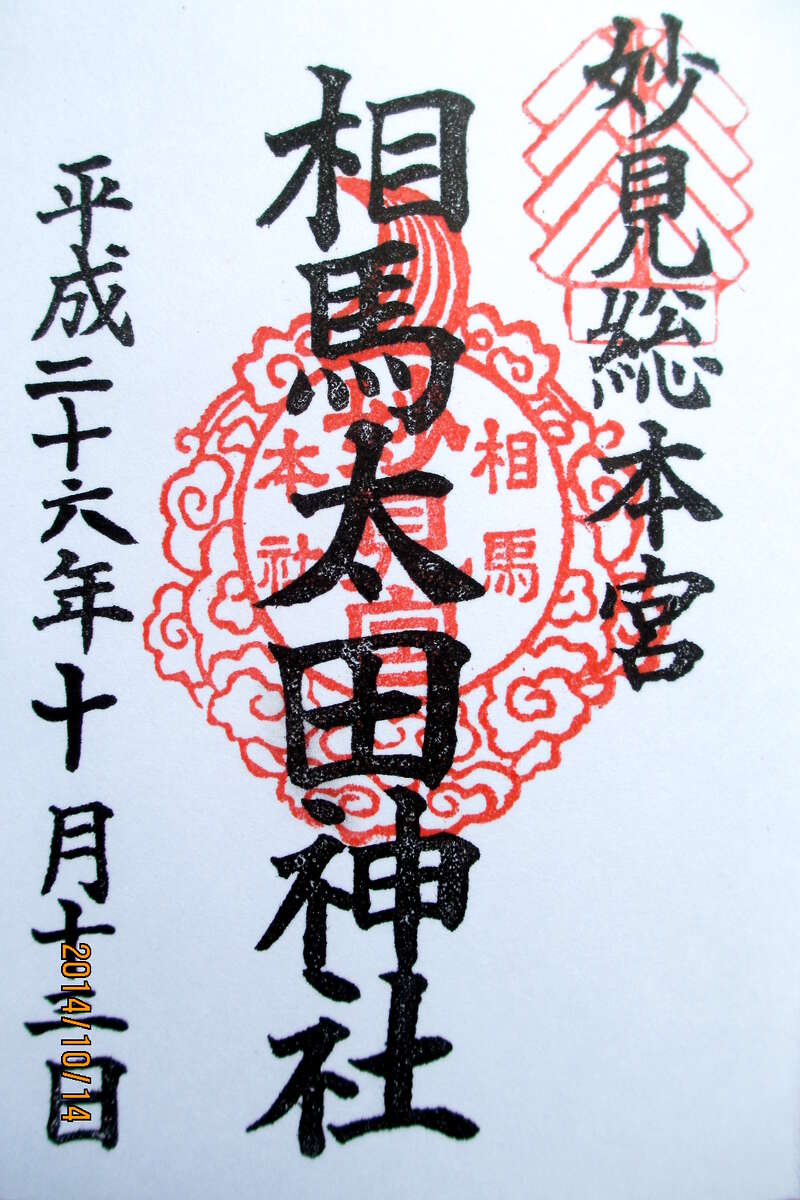 妙見総本宮
相馬太田神社
相馬
妙見宮
本社
平成二十六年十月十三日
2014/10/14